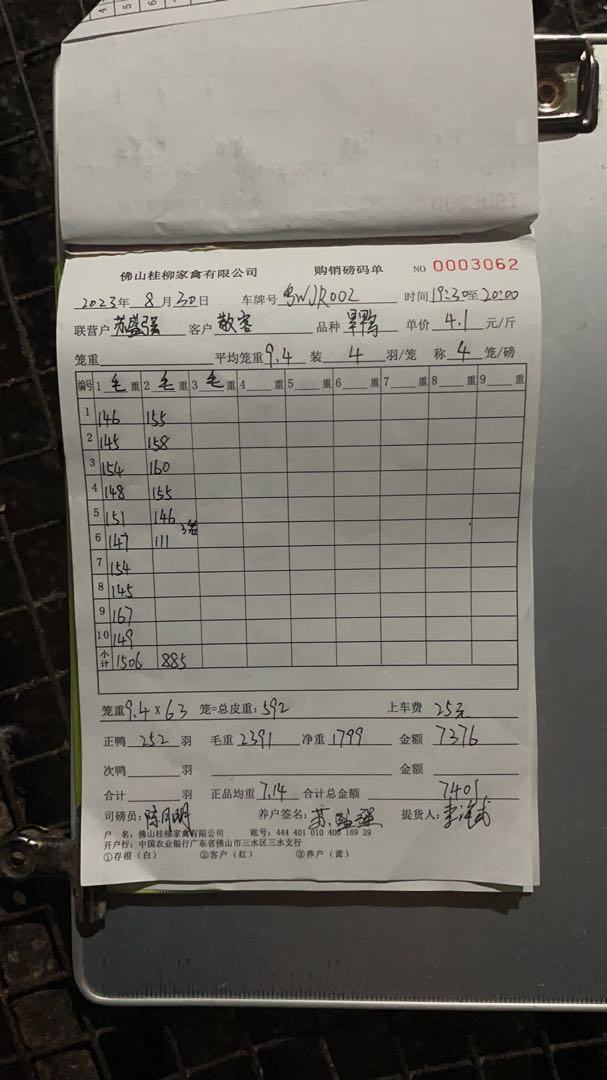 佛山桂柳家禽有限公司 购销磅码单 NO 0003062
2023年 8月30日 车牌号 粤WJR002 时间19:30至20:00
联营户 苏盛强 客户 散客 品种 旱鸭 单价 4.1 元/斤
笼重 平均笼重9.4 装 4 羽/笼 称 4 笼/磅
编号 1 毛 重 2 毛 重 3 毛 重 4 重 5 重 6 重 7 重 8 重 9 重
1 146 155
2 145 158
3 154 160
4 148 155
5 151 146
3笼
6 147 111
7 154
8 145
9 167
10 149
小计 1506 885
笼重9.4×63 笼=总皮重:592 上车费 25元
正鸭 252 羽 毛重2391 净重1799 金额 7376
次鸭 羽 金额
合计 羽 正品均重7.14 合计总金额 7401
司磅员: 养户签名:苏盛强 提货人:
户 名:佛山桂柳家禽有限公司 账号:444 401 010 400 169 29
开户行:中国农业银行广东省佛山市三水区三水支行
①存根(白) ②客户(红) ③养户(黄)